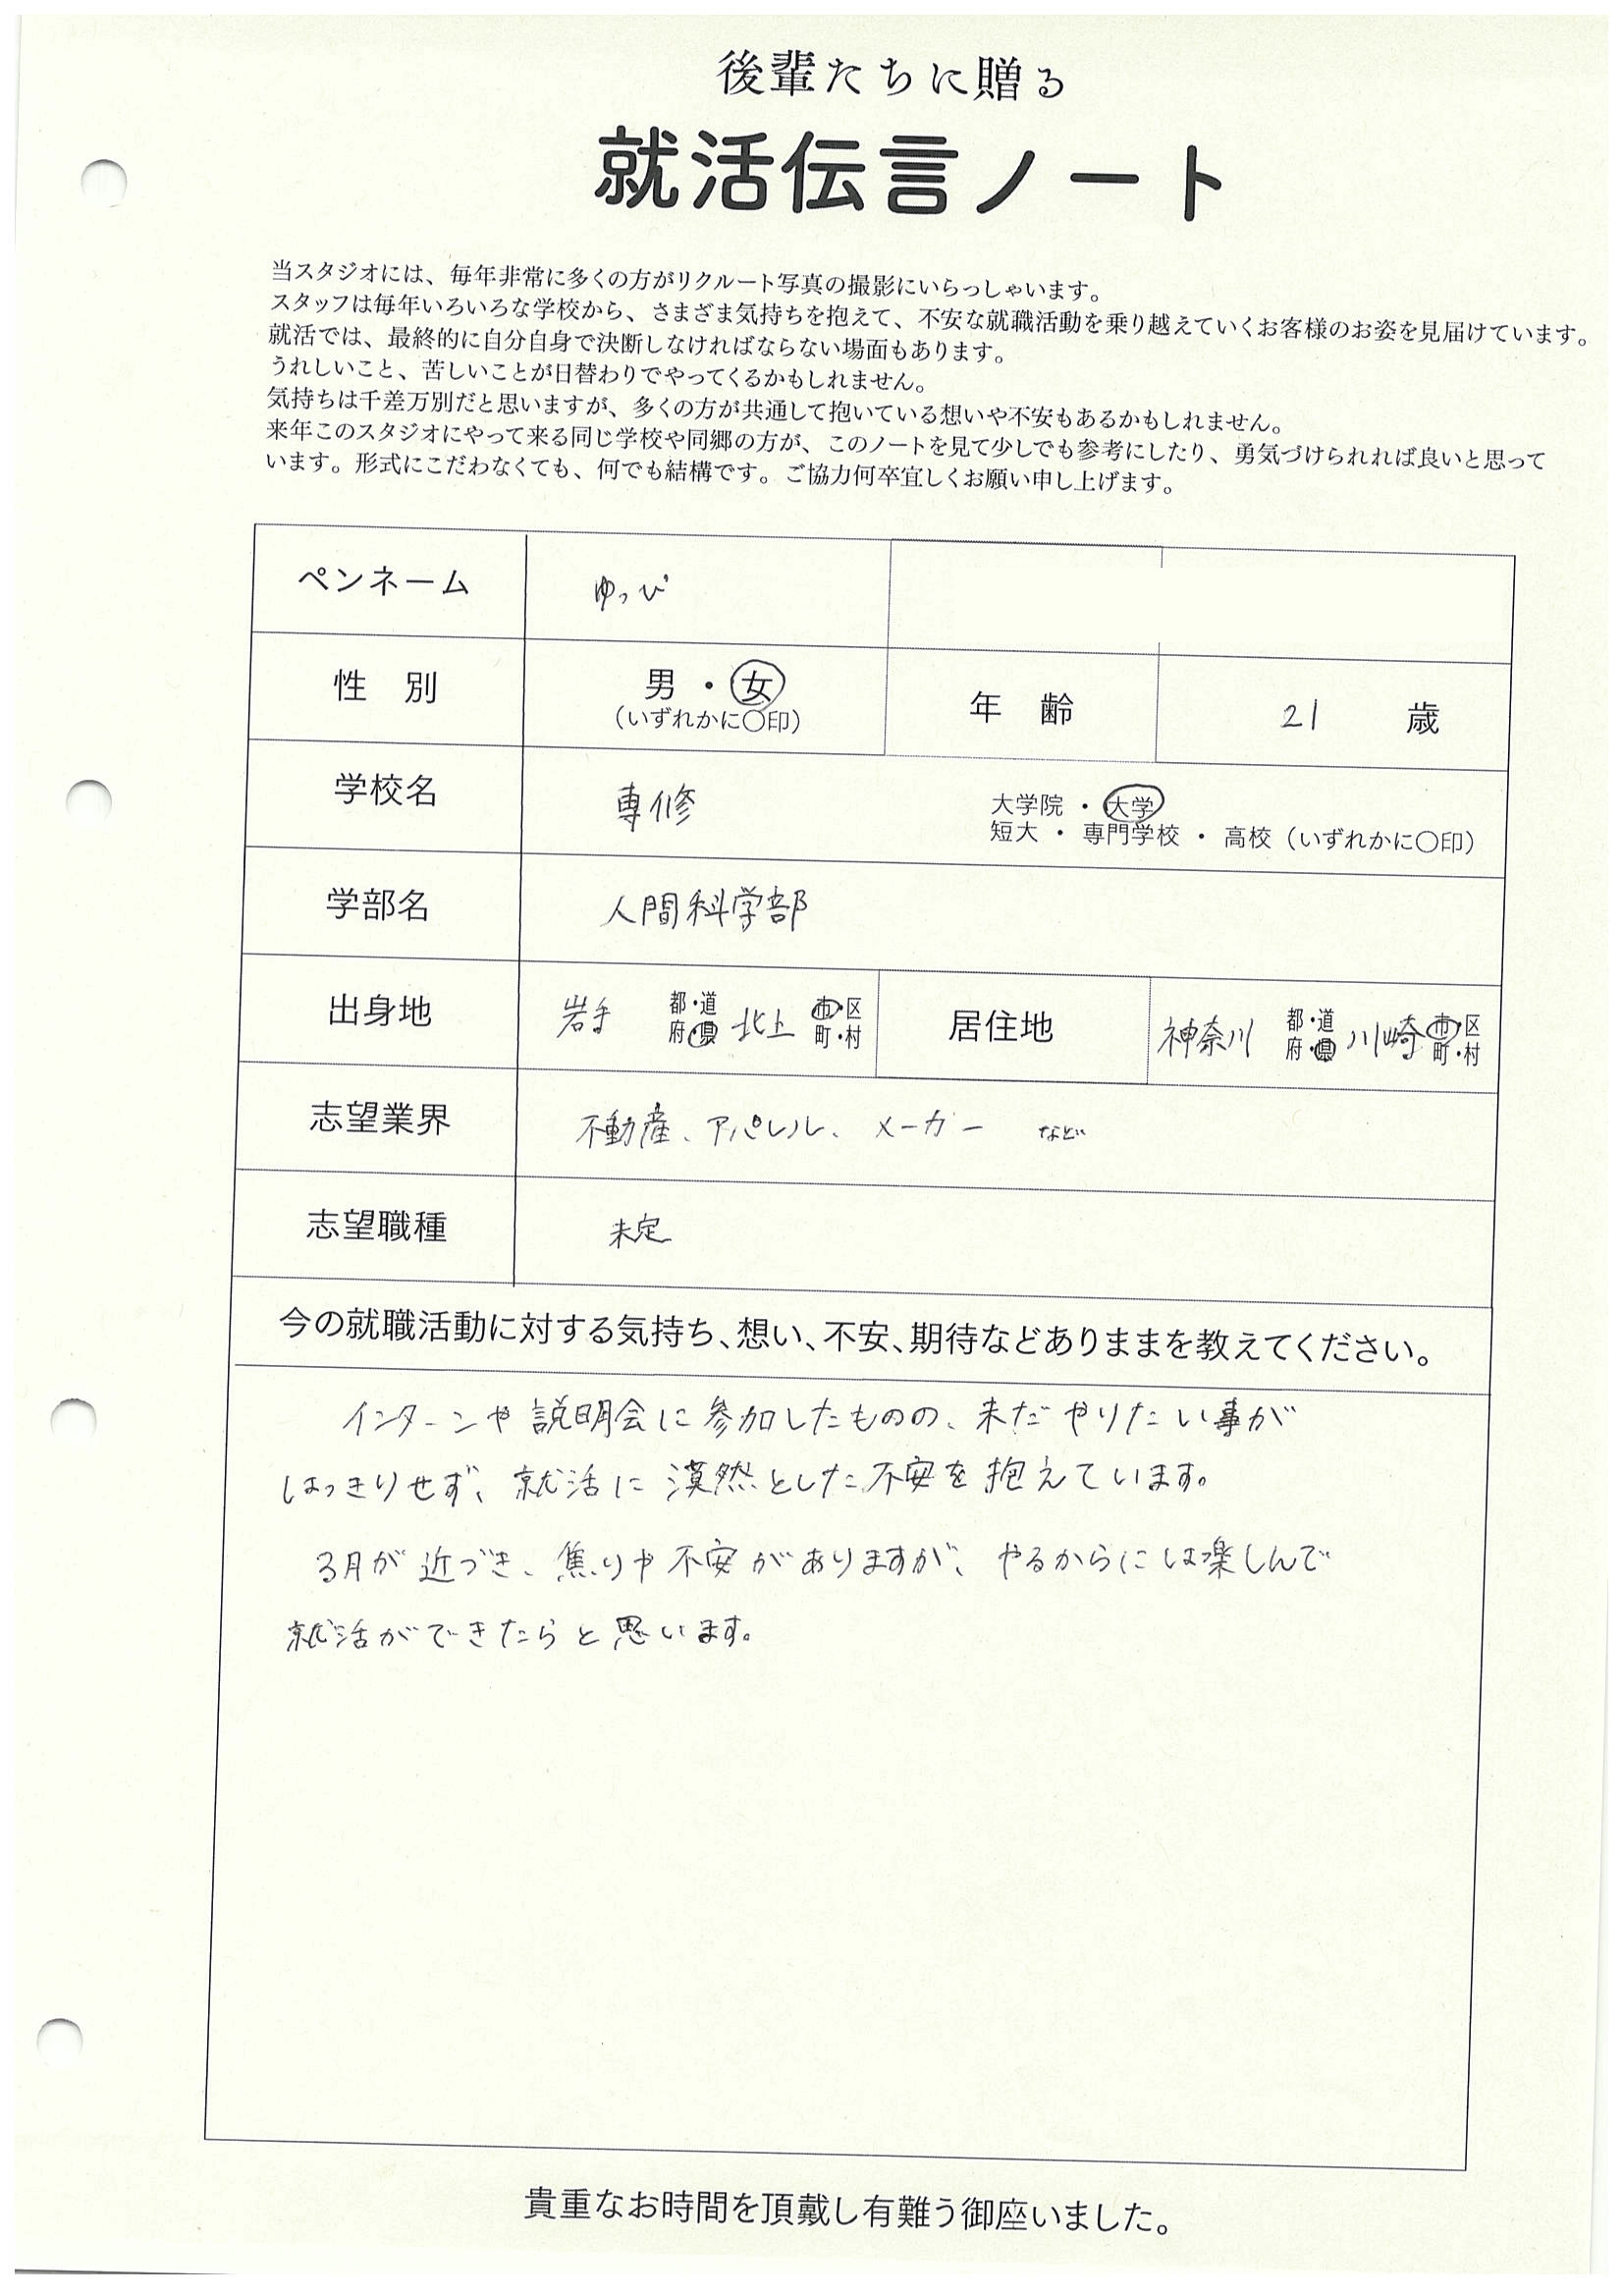 後輩たちに贈る
就活伝言ノート
当スタジオには、毎年非常に多くの方がリクルート写真の撮影にいらっしゃいます。
スタッフは毎年いろいろな学校から、さまざま気持ちを抱えて、不安な就職活動を乗り越えていくお客様のお姿を見届けています。
就活では、最終的に自分自身で決断しなければならない場面もあります。
うれしいこと、苦しいことが日替わりでやってくるかもしれません。
気持ちは千差万別だと思いますが、多くの方が共通して抱いている想いや不安もあるかもしれません。
来年このスタジオにやって来る同じ学校や同郷の方が、このノートを見て少しでも参考にしたり、勇気づけられれば良いと思って
います。形式にこだわなくても、何でも結構です。ご協力何卒宜しくお願い申し上げます。
ペンネーム ゆっぴ
性 別 男・女 (いずれかに〇印) 年 齢 21 歳
学校名 専修 大学院・大学
短大・専門学校・高校(いずれかに〇印)
学部名 人間科学部
出身地 岩手 都・道 府・県 北上 市・区 町・村 居住地 神奈川 都・道 府・県 川崎 市・区 町・村
志望業界 不動産、アパレル、メーカー など
志望職種 未定
今の就職活動に対する気持ち、想い、不安、期待などありままを教えてください。
インターンや説明会に参加したものの、未だやりたい事が
はっきりせず、就活に漠然とした不安を抱えています。
3月が近づき、焦りや不安がありますが、やるからには楽しんで
就活ができたらと思います。
貴重なお時間を頂戴し有難う御座いました。